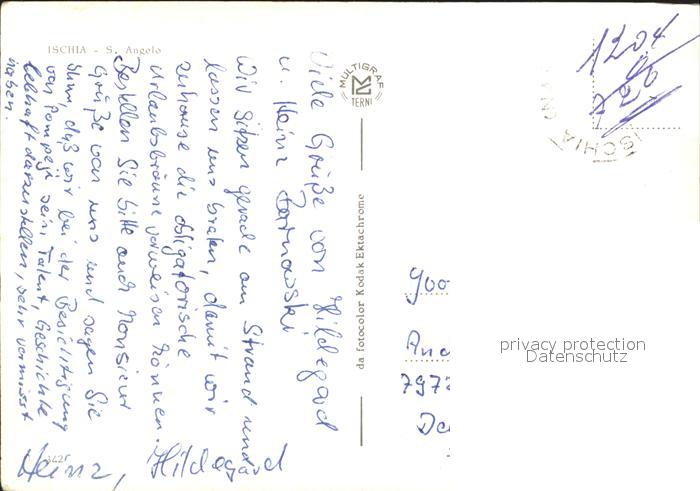 ISCHIA - S. Angelo
Viele Grüße von Hildegard
u. Heinz
Wir sitzen gerade am Strand und
lassen uns braten, damit wir
zuhause die obligatorische
Urlaubsbräune vorweisen können.
Bestellen Sie bitte auch Monsieur
Grüße von uns und sagen Sie
ihm, daß wir bei der Besichtigung
von Pompeji sein Talent, Geschichte
lebhaft darzustellen, sehr vermisst
haben.
Heinz, Hildegard
MULTIGRAF
TERNI
da fotocolor Kodak Ektachrome
1204
ISCHIA
privacy protection
Datenschutz